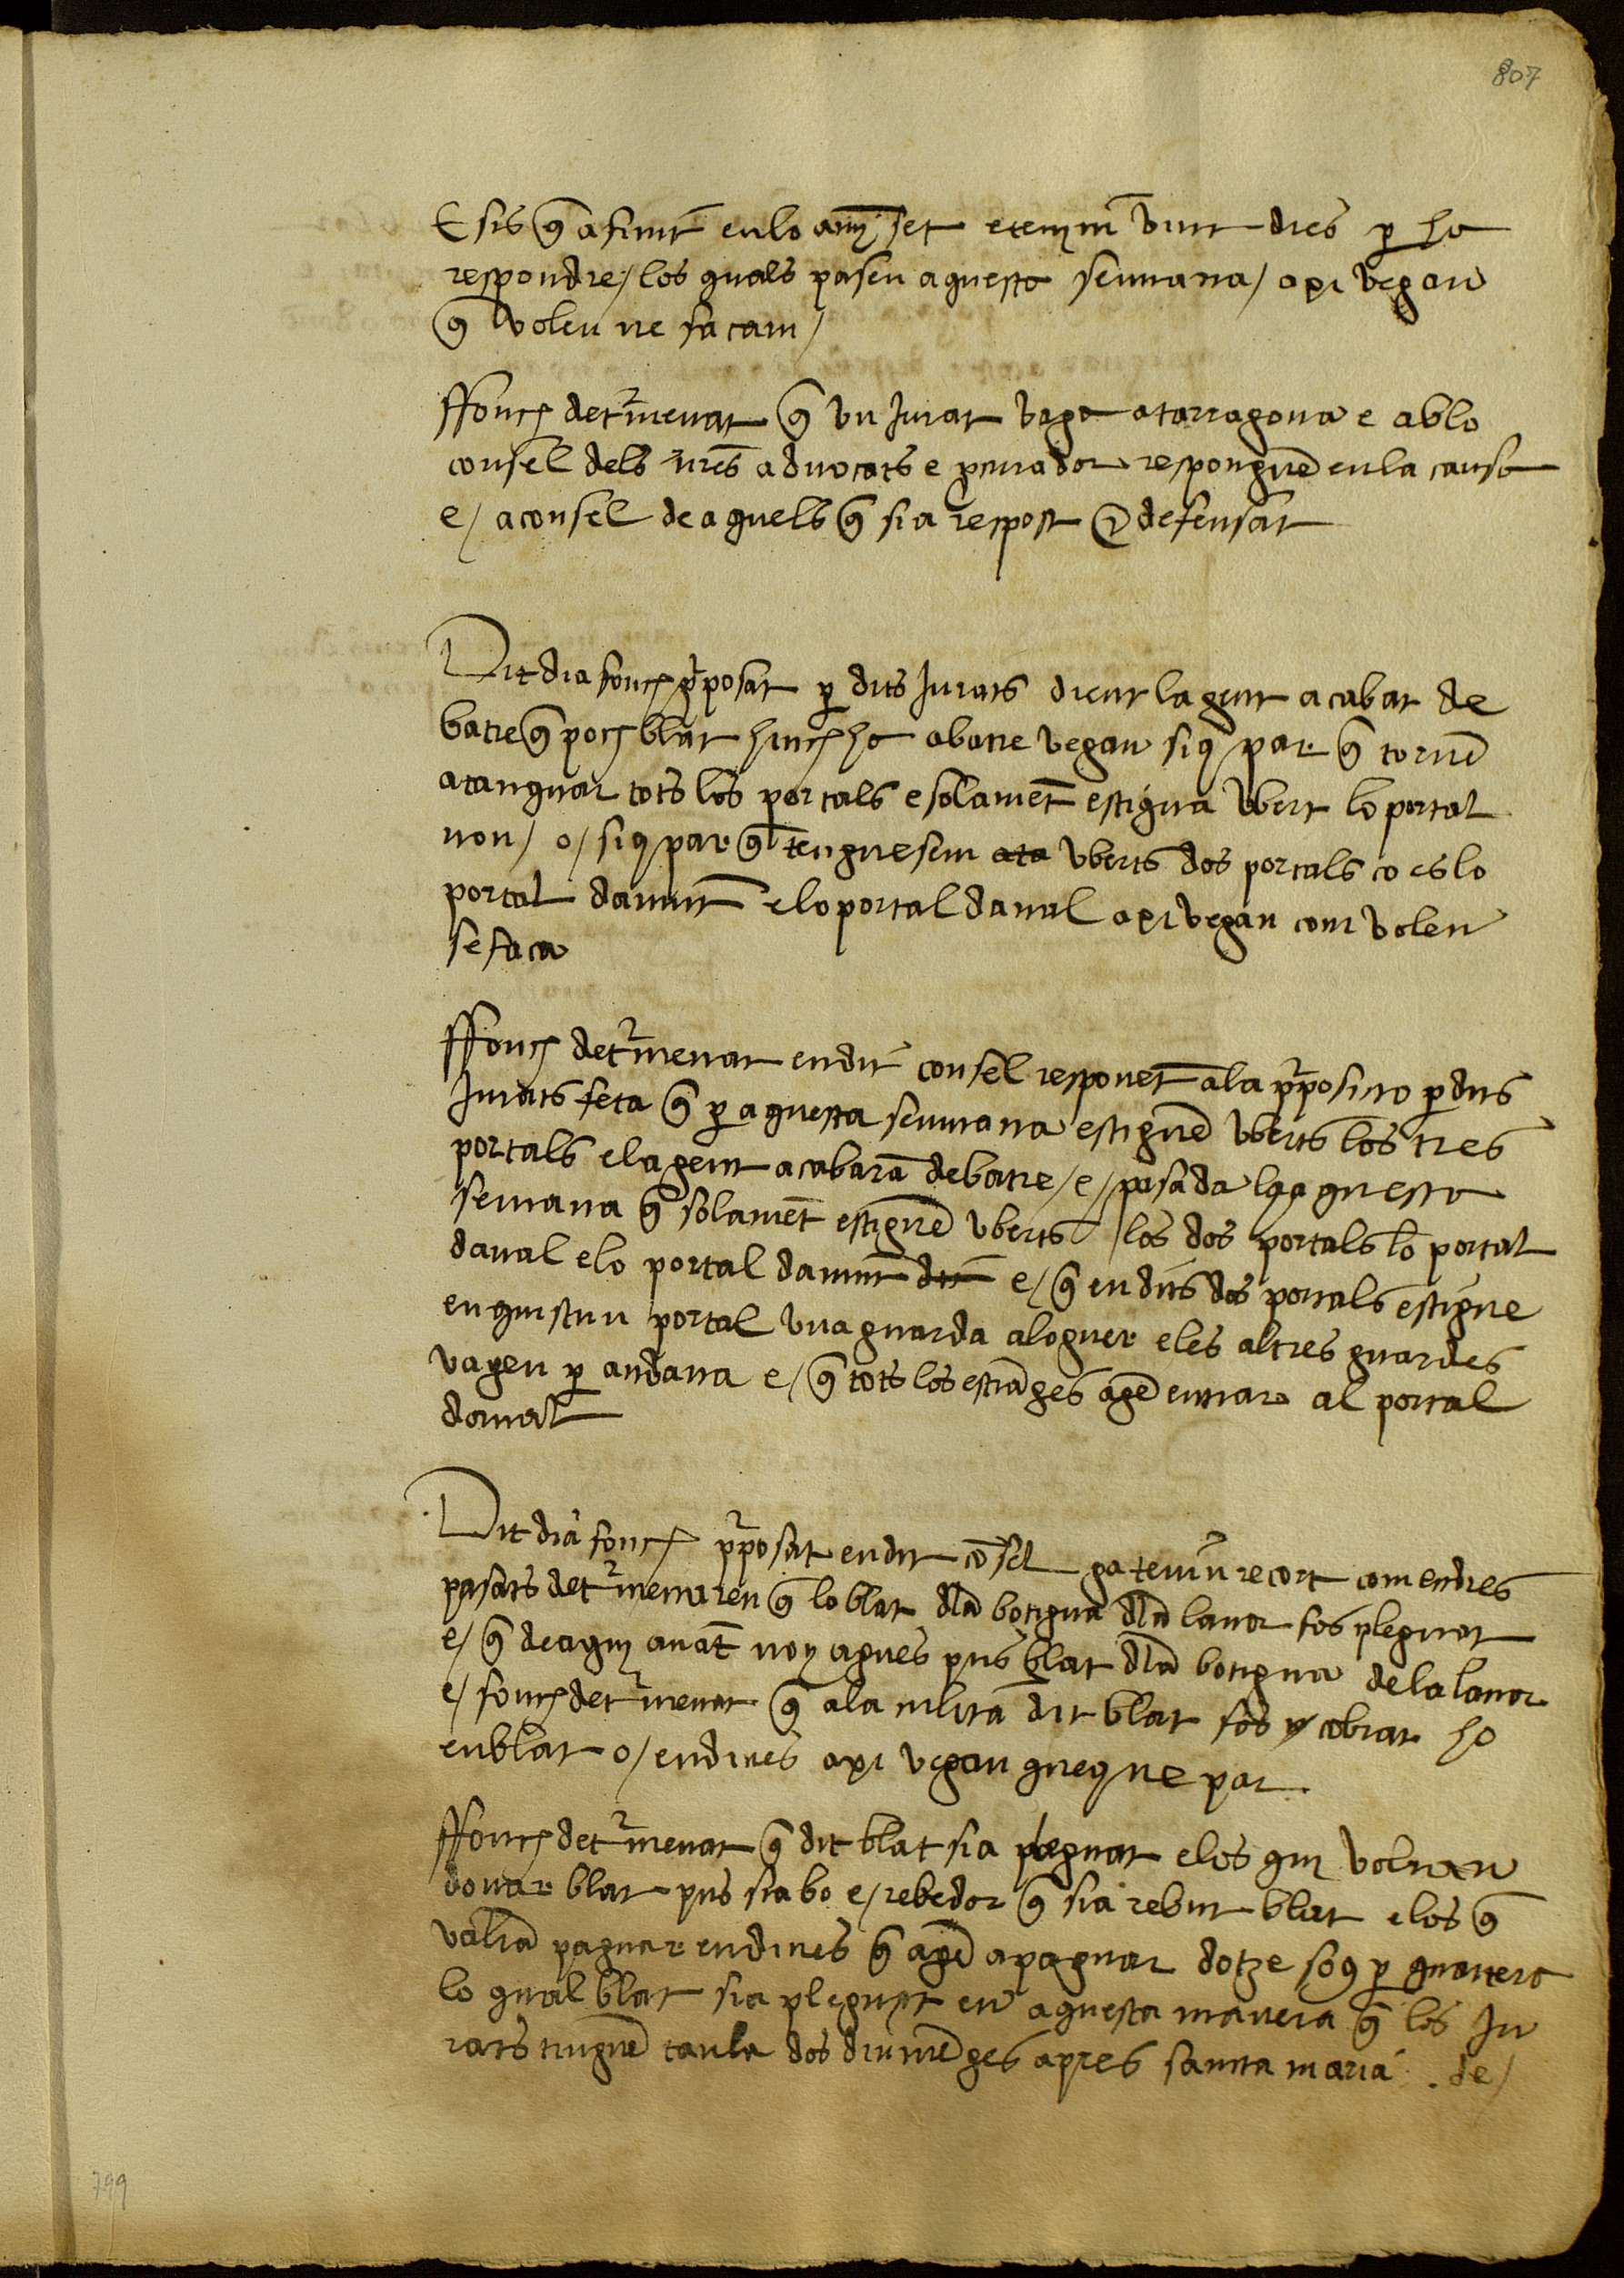 807
E sis q̃ afimt̃ en lo any set e tenim vint dies p̱ ha
respondre / los quals pasen aquesta semmana / axi vegan
q̃ volen ne façam /
ffonch det²menat q̃ vn Jurat vaga a tarragona e ab lo
consel dels nr̃es aduocats e pcurador responguẽ en la causa
e / a consel de aquels q̃ sia respost & defensat
Dit dia fonch p²posat p̱ dits Jurats dient la gent acabat de
batre q̃ poch blat hinch ha abatre vegan siq̱ par q̃ tornẽ
atanquar tots los portals e solamẽt estigua vbert lo portal
nou / o / siq̱ par q̃ tenguesem ata vberts dos portals ço es lo
portal damunt e lo portal daual axi vegan com volen
se faça
ffonch det²menat en dit consel responẽt a la p²posicio p̱ dits
Jurats feta q̃ p̱ aquesta semmana estiguẽ vberts los tres
portals e la gent acabarã de batre / e / pasada la aquesta
semana q̃ solamẽt estiguẽ vberts los dos portals lo portal
daual e lo portal damunt dit e / q̃ en dits dos portals estigue
en quiscun portal vna guarda aloguer e les altres guardes
vagen p̱ andana e / q̃ tots los estrãges agẽ entrar al portal
daual
Dit dia fonch p²posat en dit cõsel ga tenim recort com en dies
pasats det²menaren q̃ lo blat dla botigua dla lauor fos pleguat
e / q̃ de aquj auãt noy agues pus blat dla botigua de la lauor
e / fonch det²menat q̃ a la nlita dit blat fos y cobrat ho
en blat o / en dines axi vegan queq̱ ne par
ffonch det²menat q̃ dit blat sia pleguat e los quj volran
donar blat pus sia bo e / rebedor q̃ sia rebut blat e los q̃
volrã paguar en dines q̃ agẽ apaguar dotze soq̱ p̱ quartera
lo qual blat sia pleguat en aquesta manera q̃ los Ju
rats tinguẽ taula dos diumẽges apres santa maria . de /
799